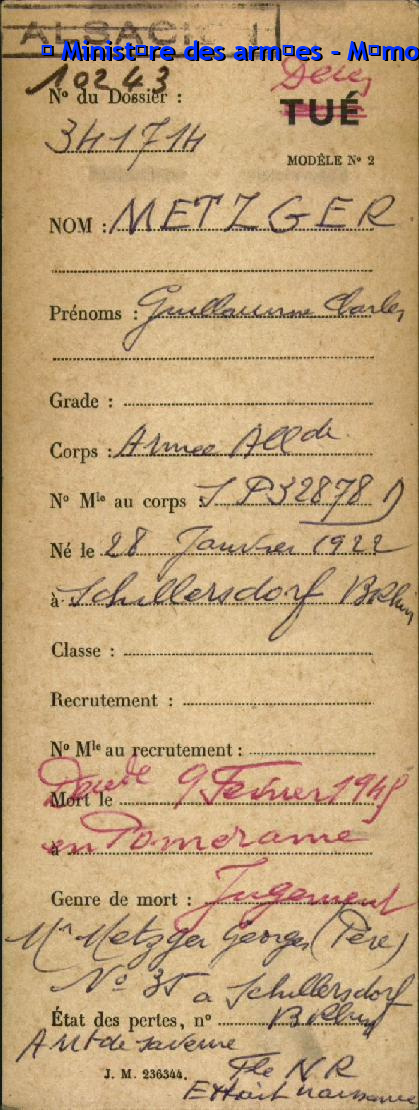 ALSACE
� Minist�re des arm�es - M�mo
10243
Décès
N° du Dossier :
TUÉ
341714
MODÈLE N° 2
NOM : METZGER
Prénoms : Guillaume Charles
Grade :
Corps : Armée Allde
N° Mle au corps : SP32878 D
Né le 28 Janvier 1922
à Schillersdorf B Rhin
Classe :
Recrutement :
N° Mle au recrutement :
Mort le 9 Février 1945
à en Pomeranie
Genre de mort : Jugement
Mr Metzger Georges (Père)
N° 35 a Schillersdorf
État des pertes, n° B Rhin
Arrt de Saverne
J. M. 236344.
Fle N R
Extrait naissance